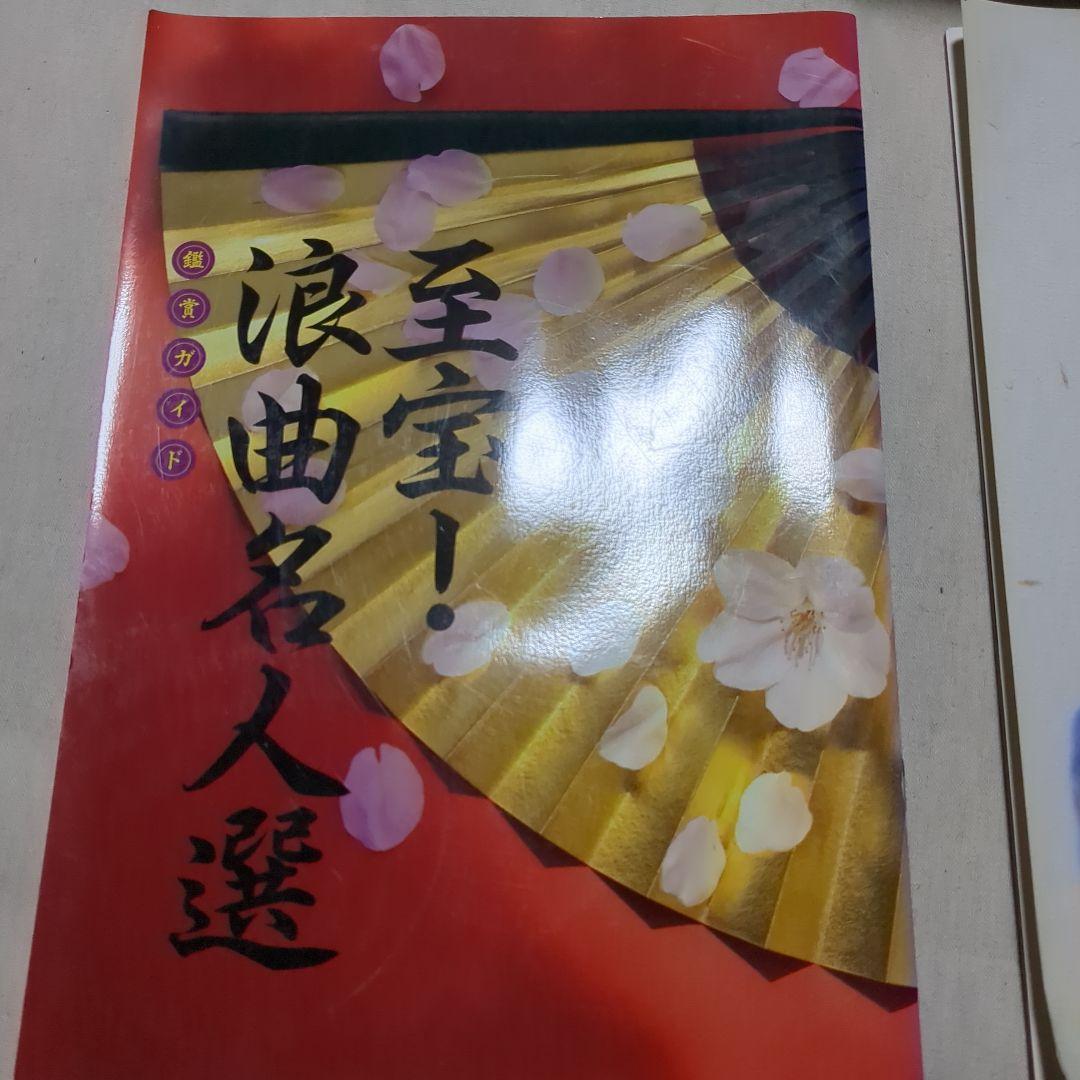 至宝!
浪曲名人選
鑑賞ガイド